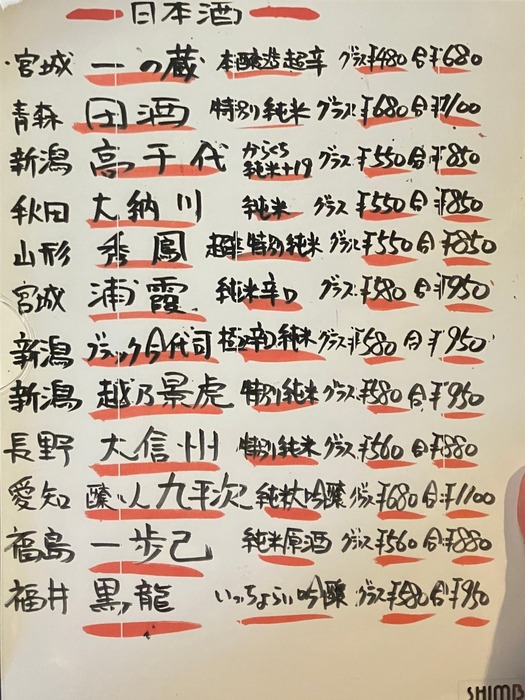 日本酒
宮城 一の蔵 本醸造超辛 グラス¥480 合¥680
青森 田酒 特別純米 グラス¥680 合¥1100
新潟 高千代 からくち純米+19 グラス¥550 合¥850
秋田 大納川 純米 グラス¥550 合¥850
山形 秀鳳 超辛特別純米 グラス¥550 合¥850
宮城 浦霞 純米辛口 グラス¥580 合¥950
新潟 ブラック今代司 極辛口純米 グラス¥580 合¥950
新潟 越乃景虎 特別純米 グラス¥580 合¥950
長野 大信州 特別純米 グラス¥560 合¥880
愛知 醸し人九平次 純米大吟醸 グラス¥680 合¥1100
福島 一歩己 純米原酒 グラス¥560 合¥880
福井 黒龍 いっちょらい吟醸 グラス¥580 合¥950